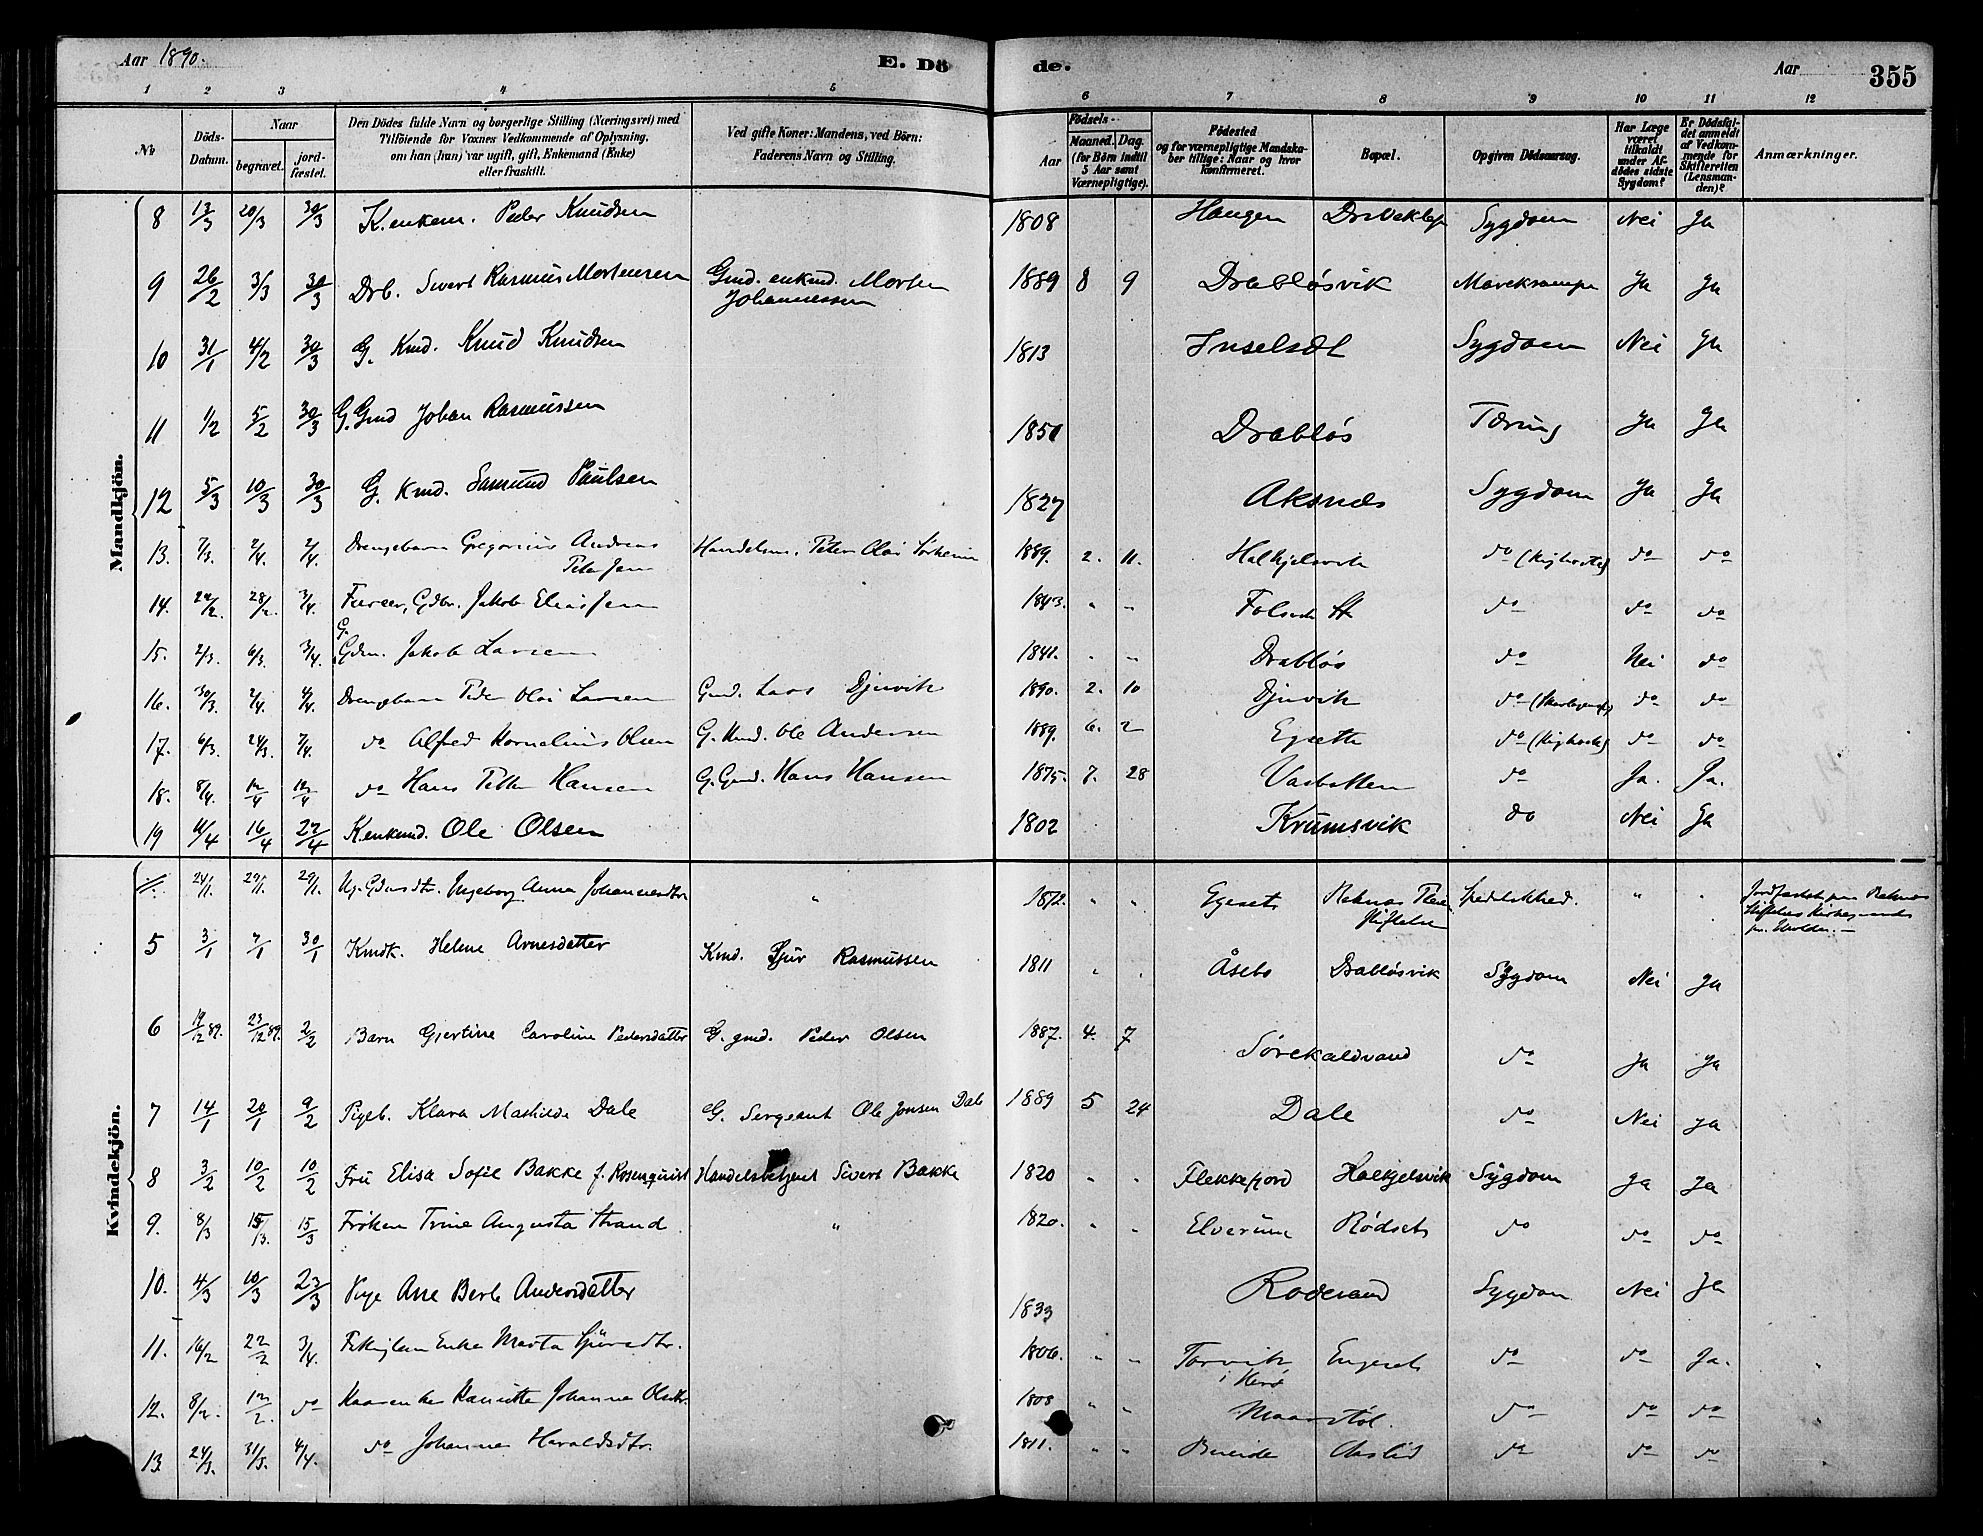 Aar 1890. E. Dö de. Aar 355
1 2 3 4 5 6 7 8 9 10 11 12
No Döds-Datum. Naar begravet. jord-fæstet. Den Dödes fulde Navn og borgerlige Stilling (Næringsvei) med Tilföiende for Voxnes Vedkommende af Oplysning, om han (hun) var ugift, gift, Enkemand (Enke) eller fraskilt. Ved gifte Koner: Mandens, ved Börn: Faderens Navn og Stilling. Födsels- Aar Maaned. Dag. (for Börn indtil 5 Aar samt Værnepligtige). Födested og for værnepligtige Mandska-ber tillige: Naar og hvor konfirmeret. Bopæl. Opgiven Dödsaarsag. Har Læge været tilkaldt under Af-dödes sidste Sygdom? Er Dödsfal-det anmeldt af Vedkom-mende for Skifteretten (Lensman-den)? Anmærkninger.
Mandkjön.
8 13/3 20/3 30/3 K. enkem. Peder Knudsen 1808 Haugen Sygdom Nei Ja
9 26/2 3/3 30/3 Drb. Sivert Rasmus Mortensen Gmd. enkmd. Morten Johannessen 1889 8 9 Drabløsvik Mavekrampe Ja Ja
10 31/1 4/2 30/3 G. Kmd. Knud Knudsen 1813 Inselset Sygdom Nei Ja
11 1/2 5/2 30/3 G. Gmd Johan Rasmussen 1851 Drabløs Tæring Ja Ja
12 5/3 10/3 30/3 G. Kmd. Samund Paulsen 1827 Aksnæs Sygdom Ja Ja
13. 7/3. 2/4. 2/4. Drengebarn Gregorius Andreas Peter Handelsm. Peter Olai 1889. 2. 11. Halkjelsvik do (Kighoste) do do
14. 24/2. 28/2. 3/4. Gdbr. Jakob 1843. " " do do do
15. 2/3. 6/3. 3/4. G. Gdm. Jakob Larsen 1841. " " Drabløs do Nei do
16. 30/3. 2/4. 4/4. Drengebarn Peder Olai Larsen Gmd. Lars Djuvik 1890. 2. 10 Djuvik do do do
17. 6/3. 24/3. 7/4. do Alfred Kornelius Olsen G. Kmd. Ole Andersen 1889. 6. 2 Egsette do (Kighoste) do do
18. 8/4. 12/4 12/4 do Hans Petter Hansen G. Gmd. Hans Hansen 1875. 7. 28 Vasbotten do Ja. Ja.
19 11/4 16/4 27/4 K. enkmd. Ole Olsen 1802 Krumsvik do Nei Ja
Kvindekjön.
24/1. 29/1. 29/1. Ug. Gdmdtr. Ingeborg Anna Johannesdtr " 1872. " " Egeset Reknæs Stiftelse Spedalskhed. " "
5 3/1 7/1 30/1 Kmdk. Helene Arnesdatter Kmd. Sjur Rasmussen 1811 " " Åsebø Drabløsvik Sygdom Nei Ja
6 19/12 89. 23/12 89. 2/2 Barn Gjertine Caroline Pedersdatter G. gmd. Peder Olsen 1887. 4. 7 Sørekaldvand do Ja Ja
7 14/1 20/1 9/2 Pigeb. Klara Mathilde Dale G. Sergeant Ole Jonsen Dale 1889 5 24 Dale do Nei Ja
8 3/2 10/2 10/2 Fru Elisa Sofie Bakke f. Rosenquist Handelsbetjent Sivert Bakke 1820 " " Flekkefjord Halkjelsvik Sygdom Ja Ja
9. 8/3 15/3. 15/3 Frøken Trine Augusta Strand " 1820. " " Elverum Rødset do do do
10. 4/3 10/3 23/3 Pige Ane Berte Andersdatter 1833 Sygdom Nei Ja
11. 16/2 22/2 3/4. Enke Marta Sjursdtr. 1806. " " Torvik i Herø Engeset do do Ja. "
12. 8/2. 12/2. do Johanne Olsdtr. 1808 " " do do do
13. 24/3. 31/3. 4/4. do Johanne Haraldsdtr. 1811. " " Bueide Aaslid do do do